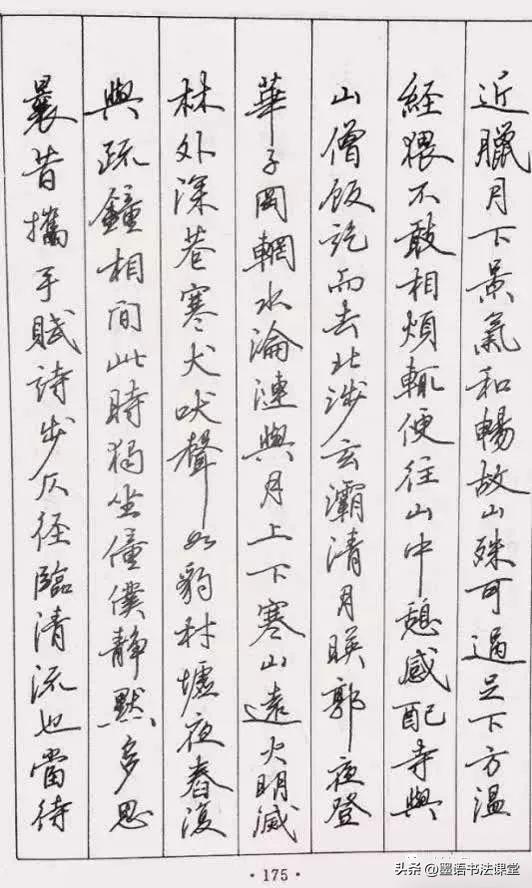 近臘月下景氣和暢故山殊可過足下方溫
經猥不敢相煩輒便往山中憩感配寺與
山僧飯訖而去北涉玄灞清月映郭夜登
華子岡輞水淪漣與月上下寒山遠火明滅
林外深巷寒犬吠聲如豹村墟夜舂復
與疏鐘相間此時獨坐僮僕靜默多思
曩昔攜手賦詩步仄徑臨清流也當待
·175·
头条@墨语书法课堂